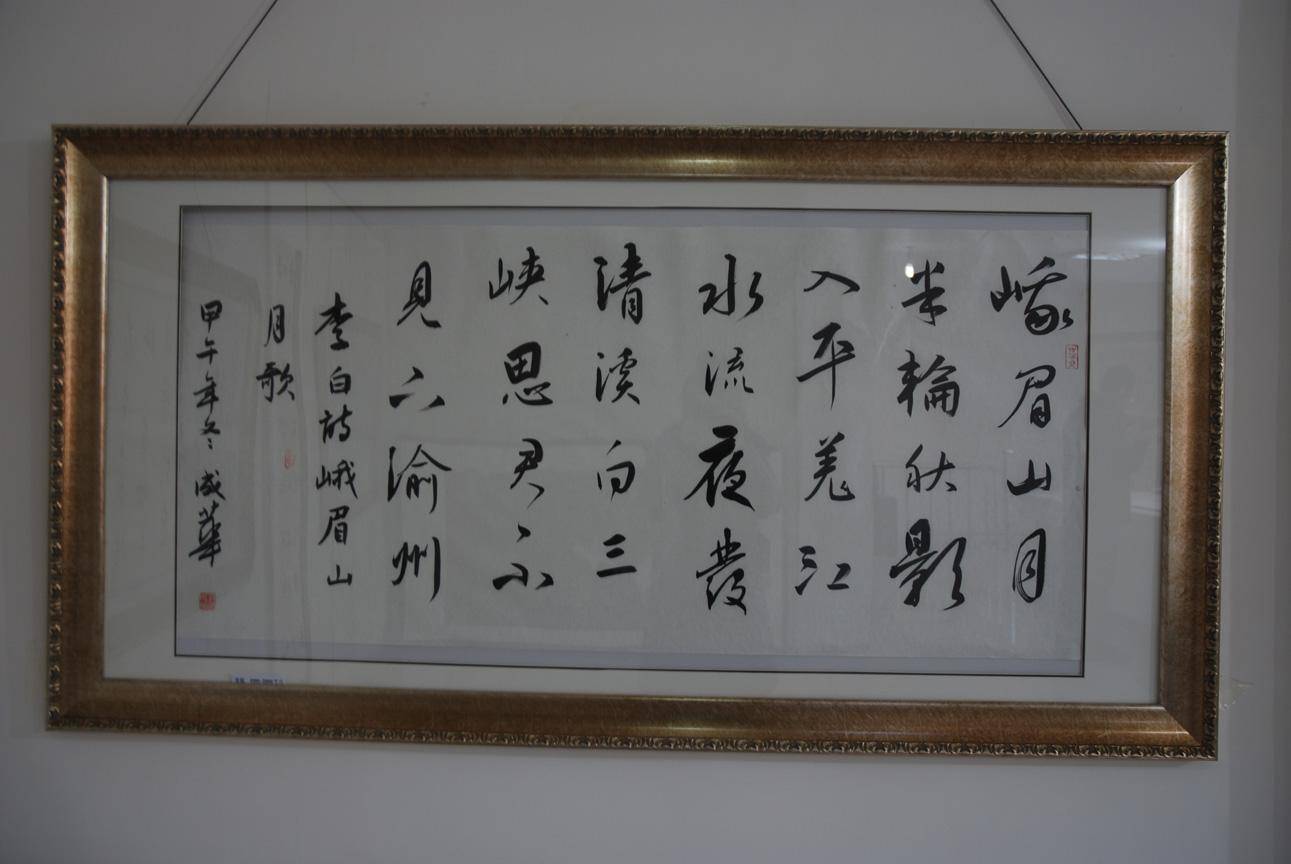 峨眉山月
半輪秋影
入平羌江
水流夜發
清溪向三
峽思君不
見下渝州
李白詩峨眉山
月歌
甲午年冬 成華